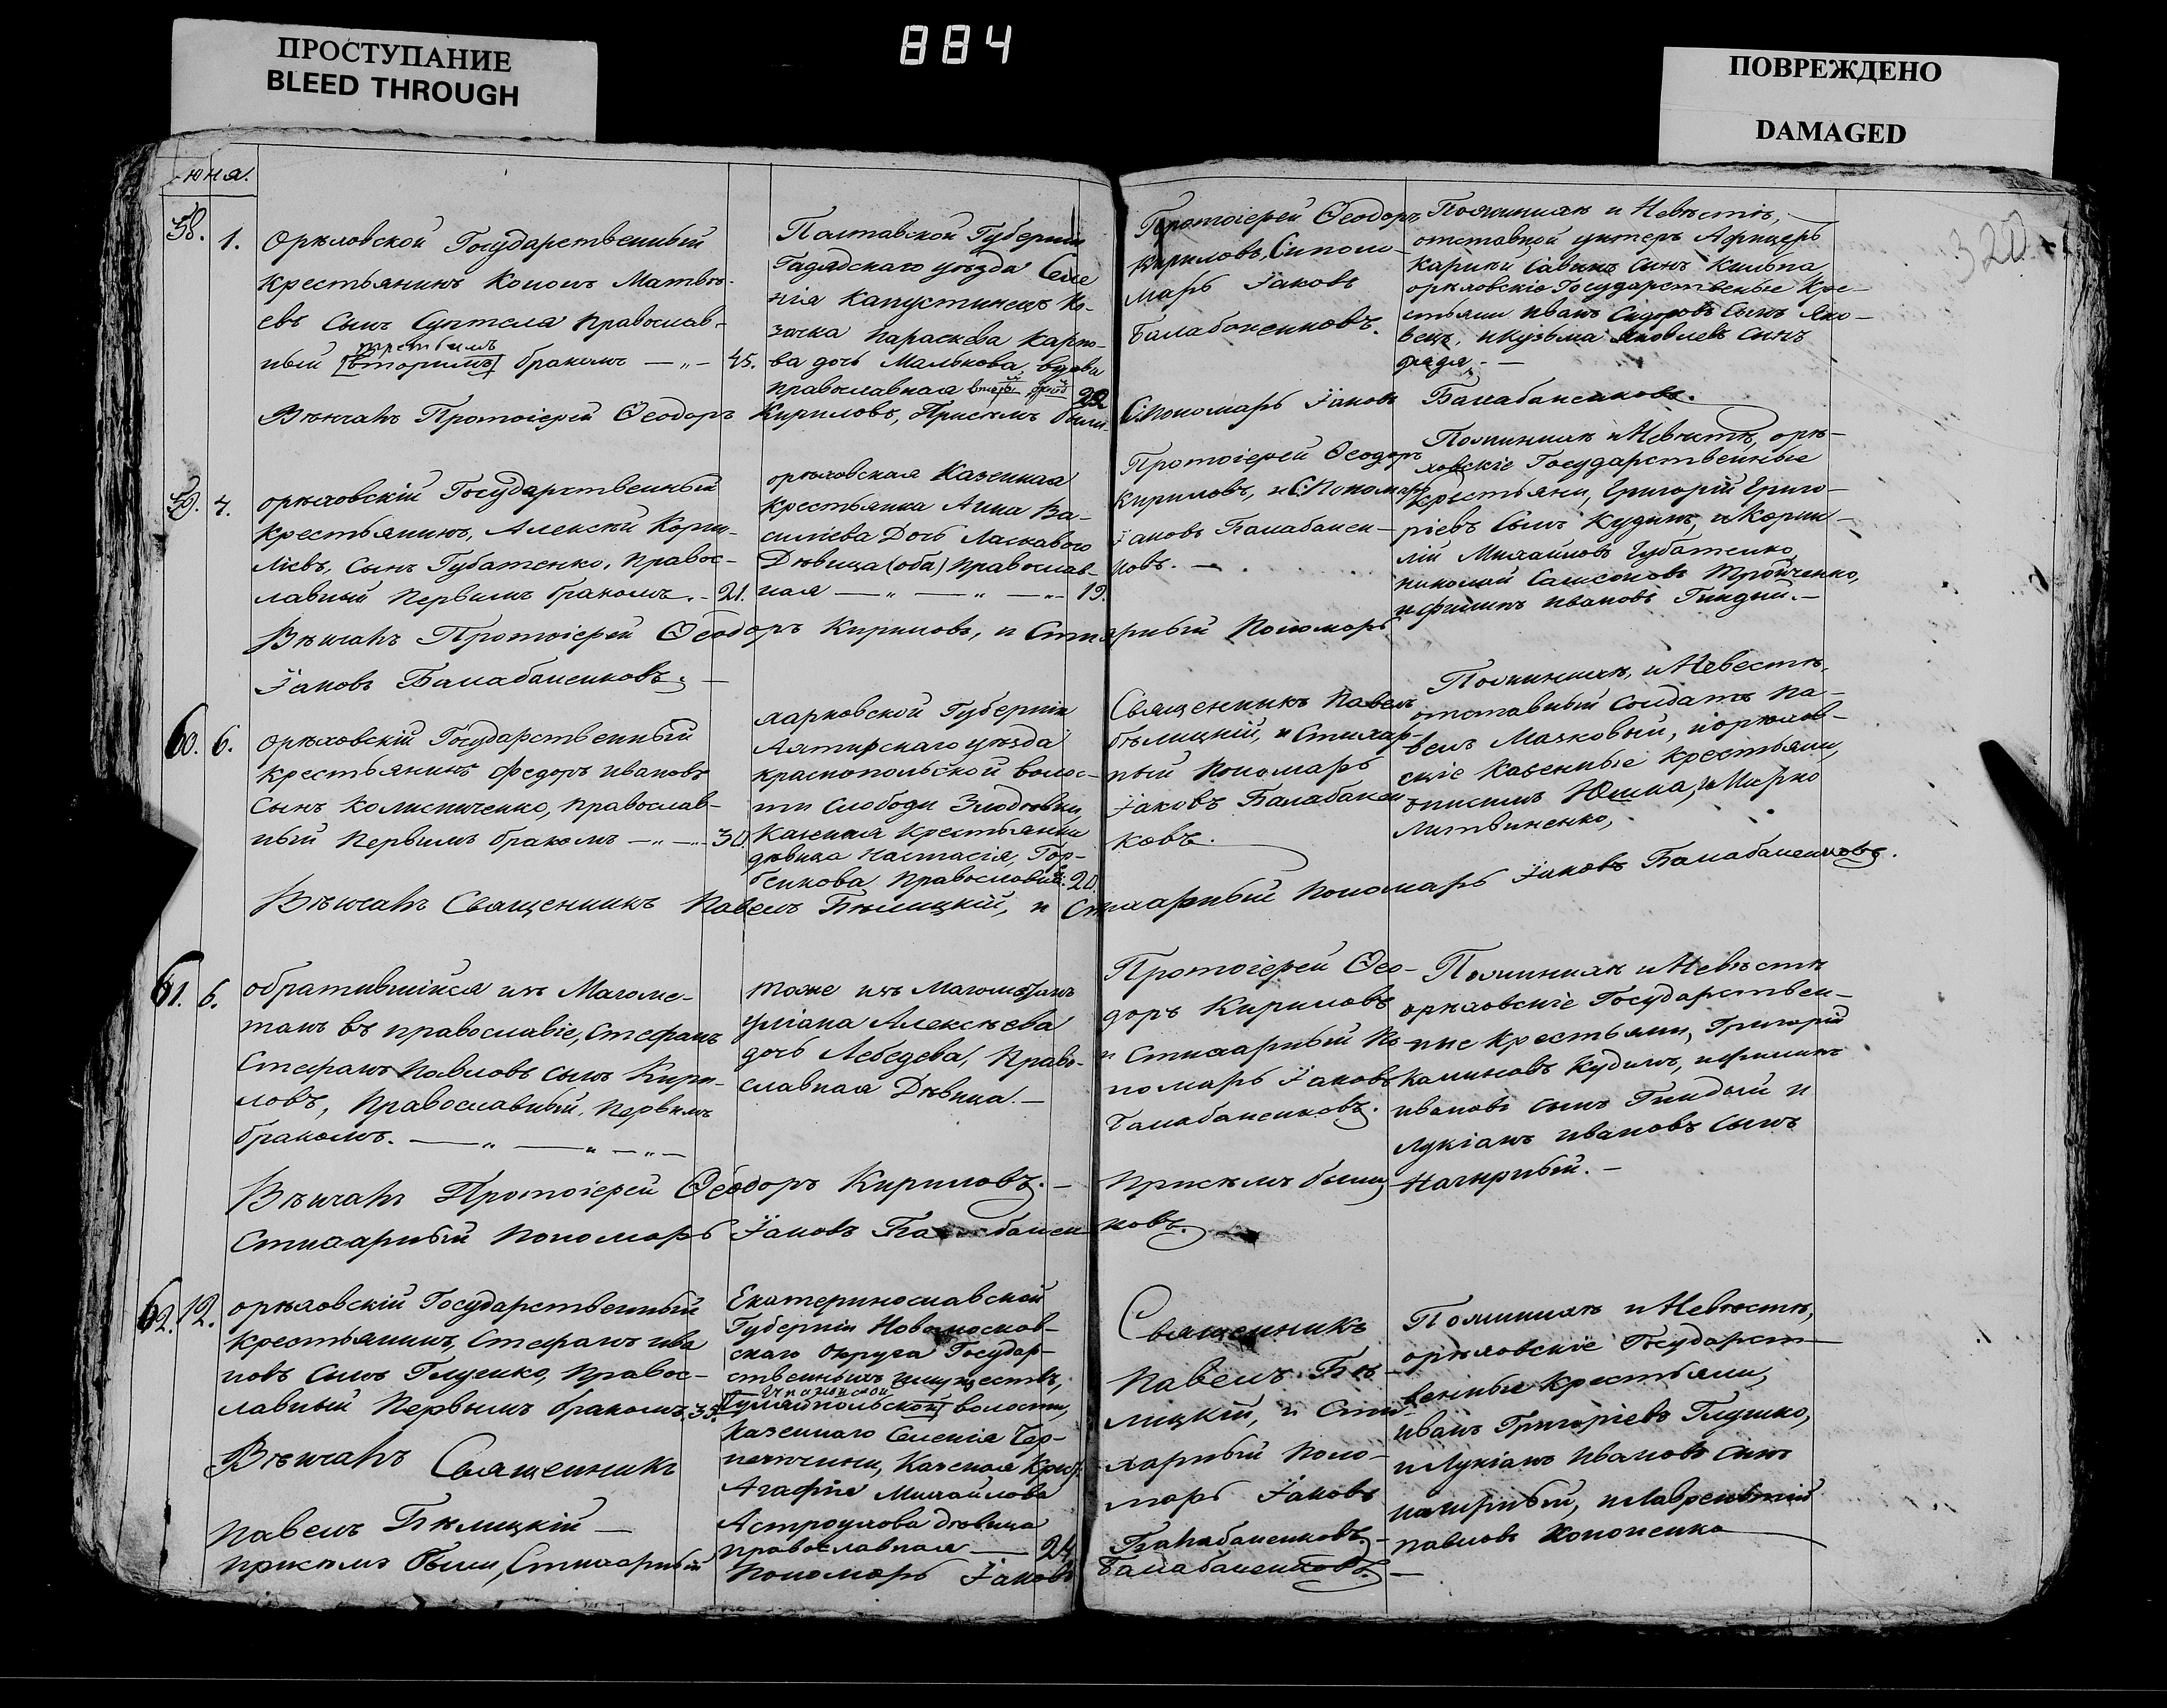 ПРОСТУПАНИЕ
BLEED THROUGH
884
ПОВРЕЖДЕНО
DAMAGED
юня.
320
58. 1.
Орѣховской Государственный
крестьянинъ Кононъ Матвѣ-
евъ Сынъ православ-
третьимъ
ный [вторимъ] бракомъ — „ — 45.
Полтавской Губерніи
Гадядскаго уѣзда Селе
нія Капустинецъ Ко-
зачка Параскева Карпо-
ва дочь Малькова, вдова
православная 22
Протоіерей Ѳеодоръ
Кириловъ, С: поно
марь Іаковъ
Балабаненковъ.
По жениха и Невѣсти,
отставной унтеръ Афицеръ
Савинъ Сынъ Кильпа
орѣховскіе Государственые Кре-
стьяни Иванъ Сидоровъ Сынъ Яко-
вецъ, и Кузьма Яковлевъ Сынъ
Вѣнчалъ Протоіерей Ѳеодоръ Кириловъ, При семъ были С: пономарь Іаковъ Балабаненковъ.
59. 4.
орѣховскій Государственный
Крестьянинъ, Алексѣй Корни-
ліевъ, Сынъ Губатенко, Правос-
лавный Первимъ бракомъ. - 21.
орѣховская Казенная
Крестьянка Анна Ва-
силіева Дочь Ласкавого
Дѣвица (оба) православ-
ная — „ — „ — „ — 19.
Протоіерей Ѳеодоръ
Кириловъ, и С: Пономарь
Іаковъ Балабанен-
ковъ. —
По женихѣ и Невѣстѣ, орѣ-
ховскіе Государственные
Крестьяни, Григорій Григо-
ріевъ Сынъ Кудинъ, и Корни-
лій Михайловъ Губатенко,
николай Самсоновъ Тройченко,
и филипъ Ивановъ Гиидый. —
Вѣнчалъ Протоіерей Ѳеодоръ Кириловъ, и Стихарный Пономарь
Іаковъ Балабаненковъ. —
60. 6.
Орѣховскій Государственный
Крестьянинъ Федоръ Ивановъ
Сынъ Колисниченко, православ-
ный Первимъ бракомъ — „ — „ — 30.
харьковской Губерніи
Ахтирскаго уѣзда
краснопольской волос-
ти Слободи
Казенная Крестьянка
дѣвица Настасія, Гор-
бенкова Православн: 20.
Священникъ Павелъ
Бѣлицкій, и Стихар-
ный Пономарь
Іаковъ Балабанен
ковъ.
По женихѣ, и Невестѣ,
отставный Солдатъ Па-
велъ Мачковый, и орѣхов-
скіе Казенные Крестьяни,
Юшка, и Марко
Литвиненко,
Вѣнчалъ Священникъ Павелъ Бѣлицкій, и Стихарный Пономарь Іаковъ Балабаненковъ.
61. 6.
обратившійся изъ Магоме-
танъ въ православіе, Стефанъ
Стефанъ Павловъ сынъ Кири-
ловъ, Православный, Первимъ
бракомъ. — „ — „ — „ —
тоже изъ Магометанъ
уліана Алексѣева
дочь Лебедева, Право-
славная Дѣвица. —
Протоіерей Ѳео-
доръ Кириловъ
и Стихарный По
номарь Іаковъ
Балабаненковъ.
По женихѣ и Невѣстѣ
орѣховскіе Государствен-
ные Крестьяни, Григорій
Калиновъ Кудинъ, и филипъ
ивановъ сынъ Гиидый и
Лукіанъ Ивановъ Сынъ
Нагирный. —
Вѣнчалъ Протоіерей Ѳеодоръ Кириловъ. — При семъ были,
Стихарный Пономарь Іаковъ Балабаненковъ.
62. 12.
орѣховскій Государственный
Крестьянинъ, Стефанъ Ива
новъ Сынъ Глушко, правос-
лавный Первымъ бракомъ. 35.
Екатеринославской
Губерніи Новомосков-
скаго Округа Государ-
ственныхъ имуществъ,
[Гуляйпольской] волости,
Казеннаго Селенія Чер-
нечини, Казеная Крес:
Агафія Михайлова
Астроухова дѣвица
православная — 24.
Священникъ
Павелъ Бѣ-
лицкій, и Сти-
харный Поно-
марь Іаковъ
Балабаненковъ. —
По женихѣ и Невѣстѣ,
орѣховскіе Государст-
венные Крестьяни,
Иванъ Григоріевъ Глушко,
и Лукіанъ Ивановъ Синъ
нагирный, и Лаврентій
павловъ Кононенко
Вѣнчалъ Священникъ
Павелъ Бѣлицкій —
при семъ были, Стихарный Пономарь Іаковъ Балабаненковъ. —